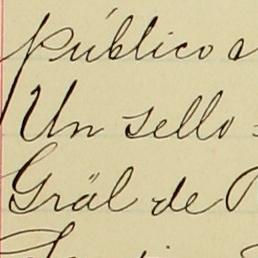 público
Un sello
Gräl de